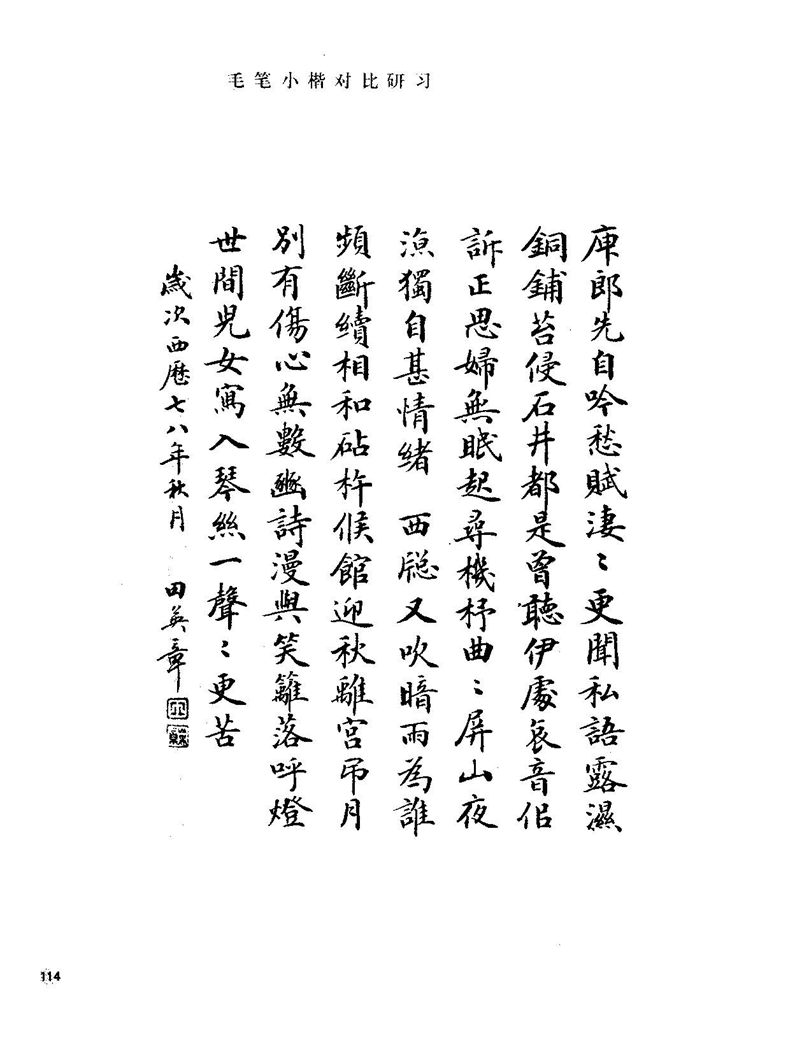 毛笔小楷对比研习
庾郎先自吟愁賦淒〻更聞私語露濕
銅鋪苔侵石井都是曾聽伊處哀音佀
訴正思婦無眠起尋機杼曲〻屏山夜
涼獨自甚情緒 西牕又吹暗雨為誰
頻斷續相和砧杵候館迎秋離宮吊月
別有傷心無數豳詩漫與笑籬落呼燈
世間兒女寫入琴絲一聲〻更苦
歲次西曆七八年秋月 田英章
114